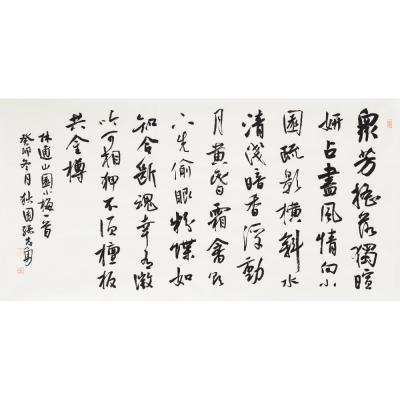 眾芳搖落獨暄
妍占盡風情向小
園疏影橫斜水
清淺暗香浮動
月黃昏霜禽欲
下先偷眼粉蝶如
知合斷魂幸有微
吟可相狎不須檀板
共金樽
林逋山園小梅一首
癸卯冬月